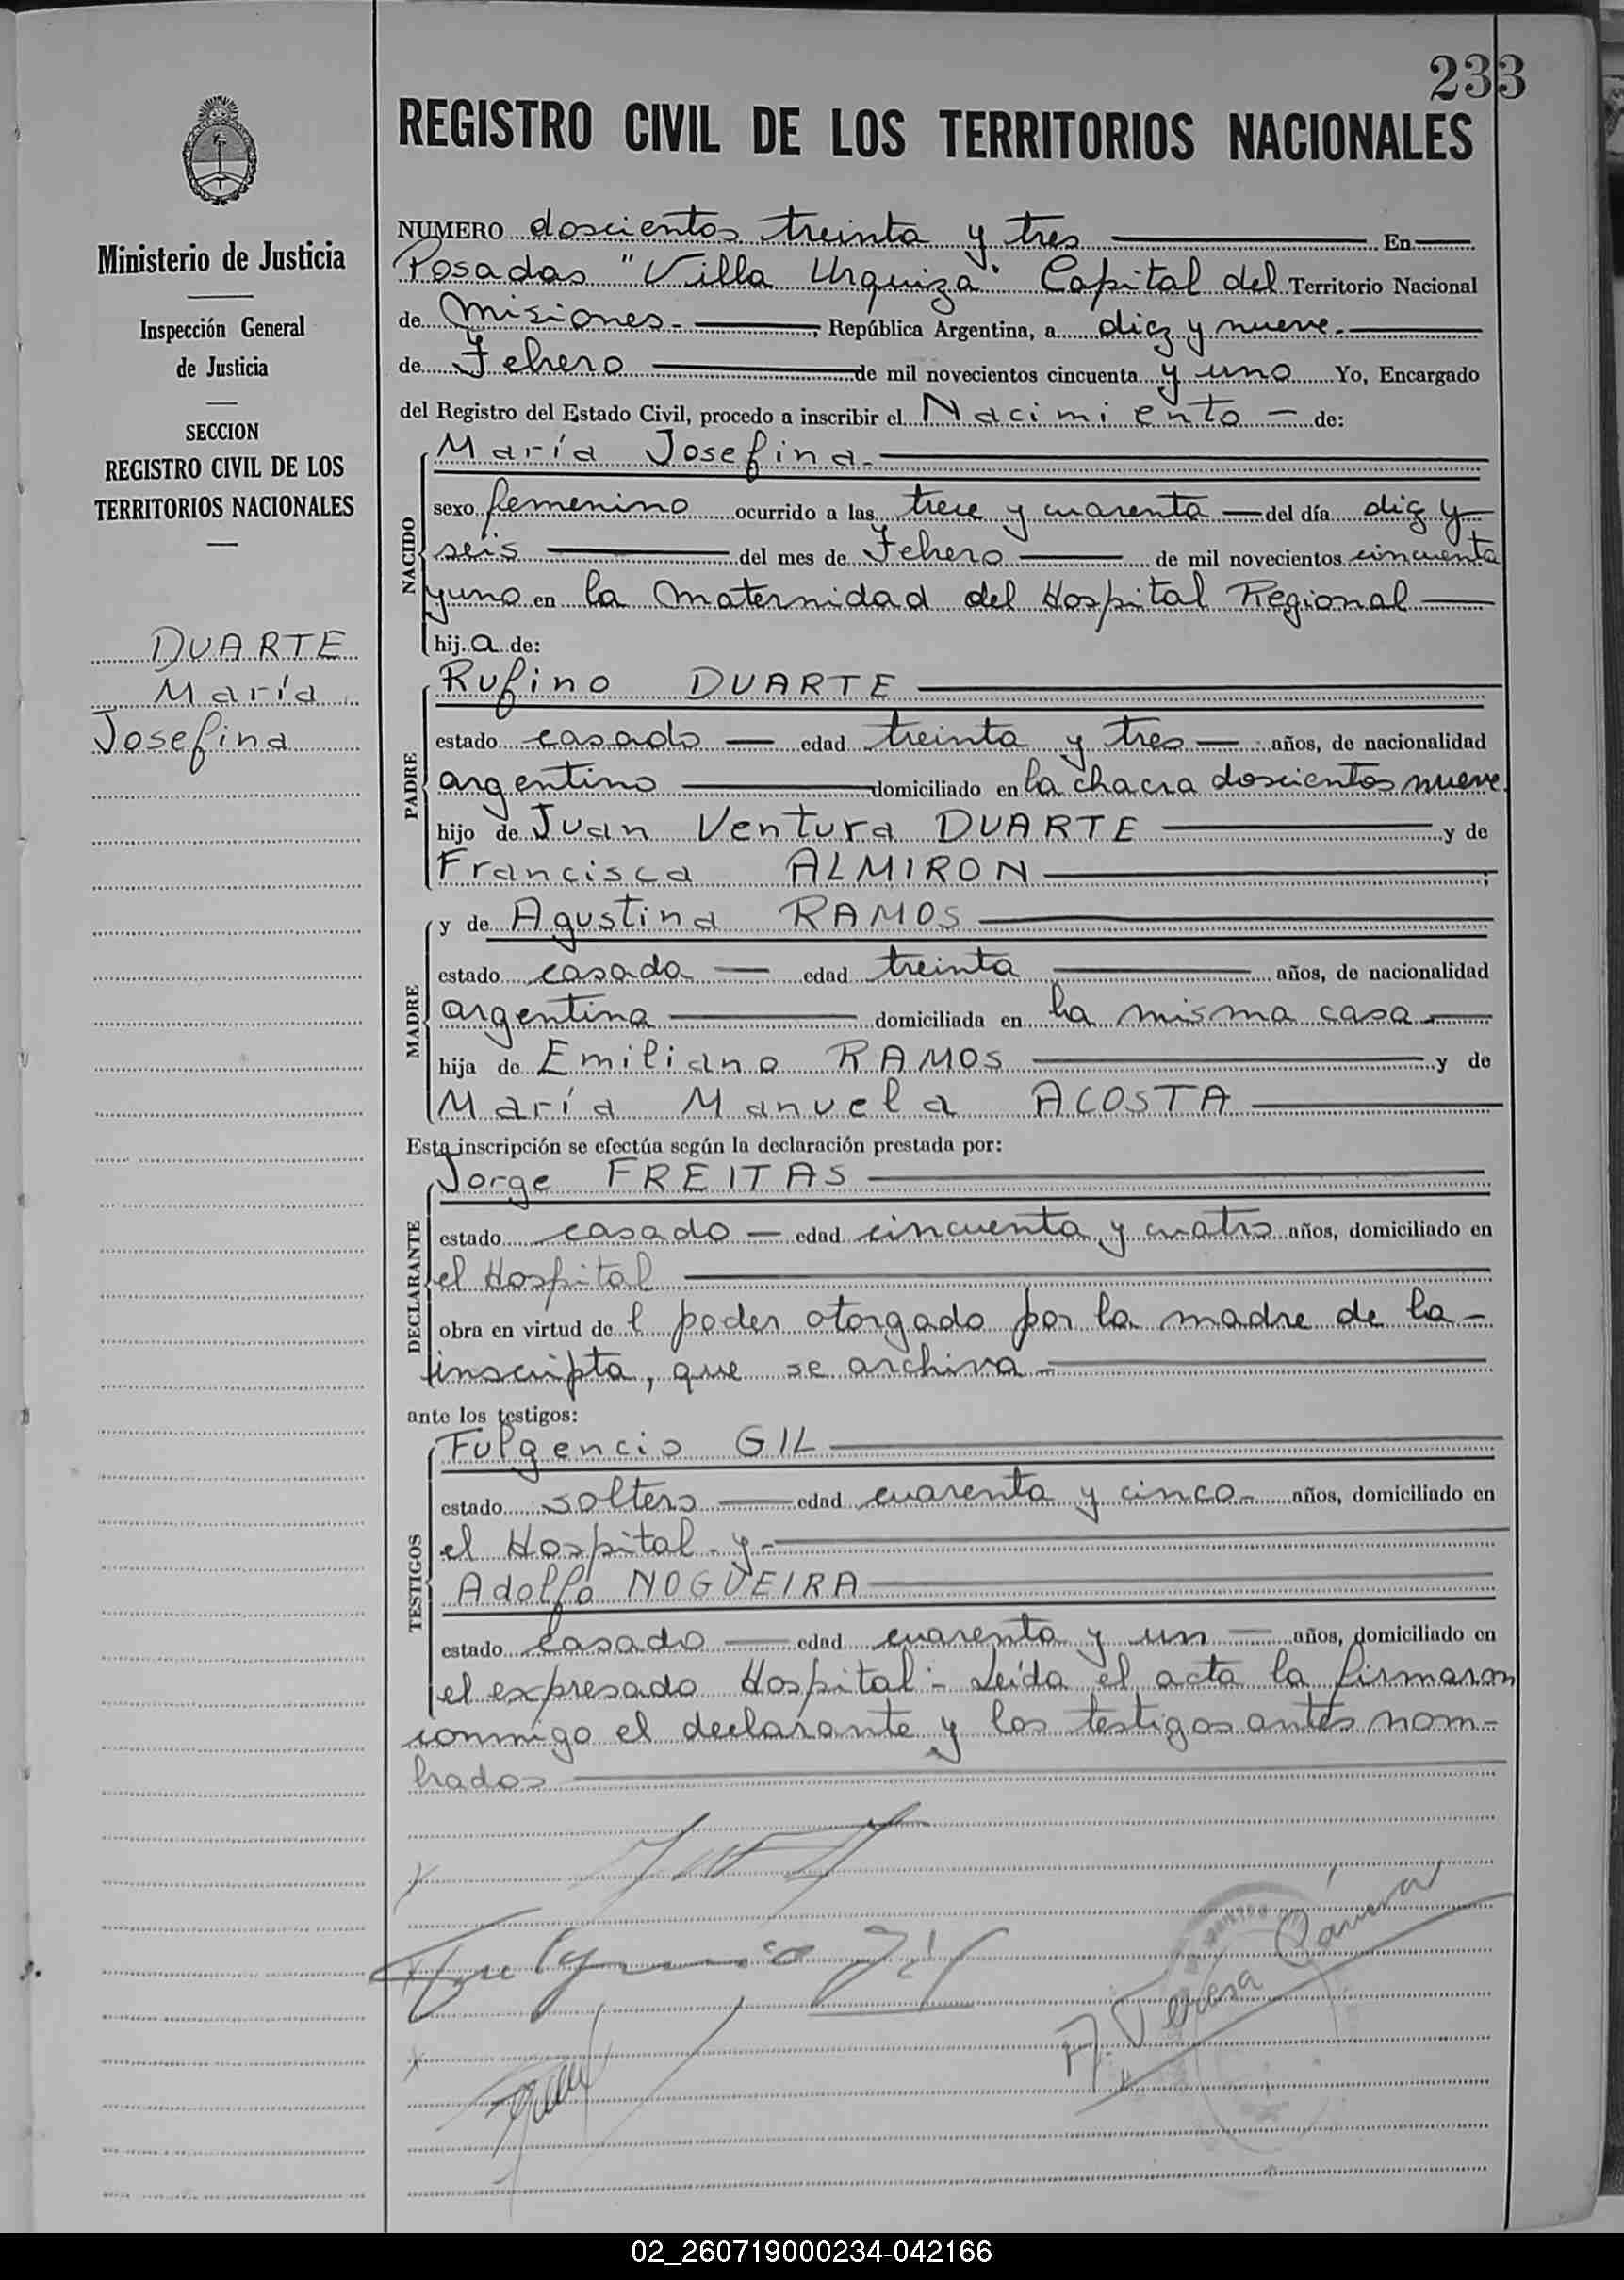 233
REGISTRO CIVIL DE LOS TERRITORIOS NACIONALES
Ministerio de Justicia
Inspección General
de Justicia
SECCION
REGISTRO CIVIL DE LOS
TERRITORIOS NACIONALES
DUARTE
María
Josefina
NUMERO doscientos treinta y tres En
Posadas "Villa Urquiza" Capital del Territorio Nacional
de Misiones.- , República Argentina, a diez y nueve.-
de Febrero de mil novecientos cincuenta y uno Yo, Encargado
del Registro del Estado Civil, procedo a inscribir el Nacimiento - de:
NACIDO
María Josefina.-
sexo femenino ocurrido a las trece y cuarenta - del día diez y
seis del mes de Febrero de mil novecientos cincuenta
y uno en la Maternidad del Hospital Regional
hij a de:
PADRE
Rufino DUARTE
estado casado - edad treinta y tres - años, de nacionalidad
argentino domiciliado en la chacra doscientos nueve
hijo de Juan Ventura DUARTE y de
Francisca ALMIRON ;
MADRE
y de Agustina RAMOS
estado casada - edad treinta años, de nacionalidad
argentina domiciliada en la misma casa
hija de Emiliano RAMOS y de
María Manuela ACOSTA
Esta inscripción se efectúa según la declaración prestada por:
DECLARANTE
Jorge FREITAS
estado casado - edad cincuenta y cuatro años, domiciliado en
el Hospital
obra en virtud de l poder otorgado por la madre de la-
inscripta, que se archiva-
ante los testigos:
TESTIGOS
Fulgencio GIL
estado soltero - edad cuarenta y cinco- años, domiciliado en
el Hospital - y -
Adolfo NOGUEIRA
estado casado - edad cuarenta y un - años, domiciliado en
el expresado Hospital.- Leída el acta la firmaron
conmigo el declarante y los testigos antes nom-
brados
Fulgencio Gil
Teresa
02_260719000234-042166